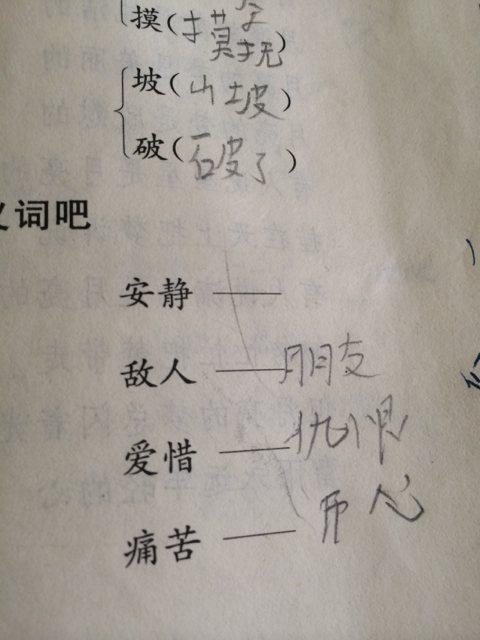 摸(摸抚)
坡(山坡)
破(破了)
义词吧
安静——
敌人——朋友
爱惜——仇恨
痛苦——开心